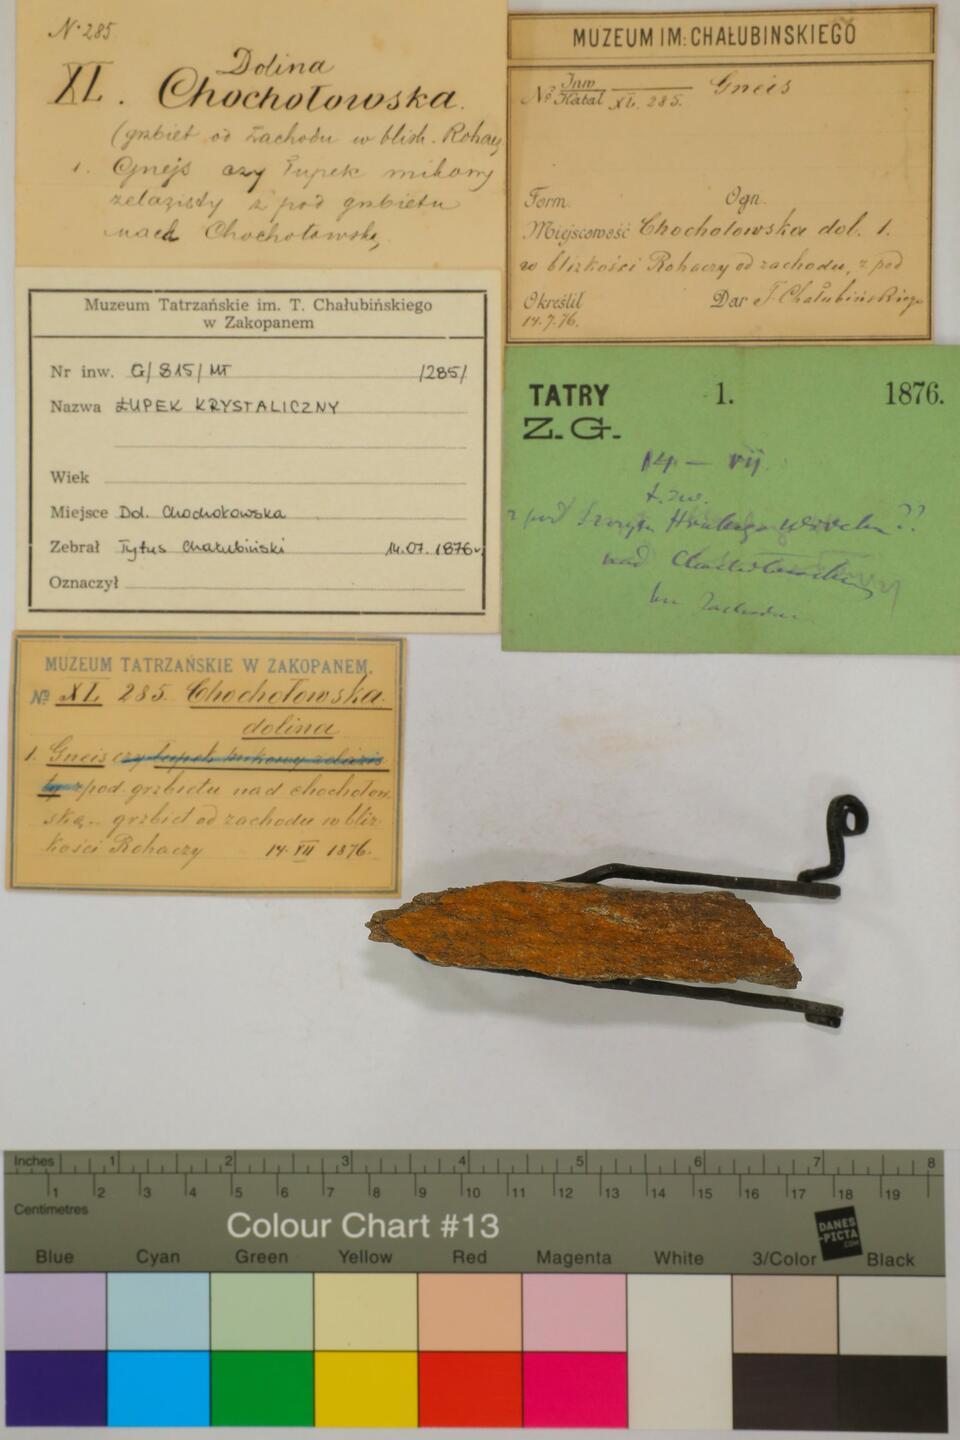 N. 285.
Dolina
XL. Chochołowska.
(grzbiet od Zachodu w blisk. Rohaczy
1. Gnejs czy łupek mikowy
żelazisty z pod grzbietu
nad Chochołowską,
MUZEUM IM: CHAŁUBINSKIEGO
№ Inw Katal XL. 285. Gneis
Form. Ogn.
Miejscowość Chochołowska dol. 1.
w blizkości Rohaczy od zachodu, z pod
Określił Dar T. Chałubińskiego
14.7.76.
Muzeum Tatrzańskie im. T. Chałubińskiego
w Zakopanem
Nr inw. G/815/MT /285/
Nazwa ŁUPEK KRYSTALICZNY
Wiek
Miejsce Dol. Chochołowska
Zebrał Tytus Chałubiński 14.07.1876r.
Oznaczył
TATRY 1. 1876.
Z. G.
14 — VII.
t. zw.
z pod Szczytu ??
nad
ku Zachodowi
MUZEUM TATRZAŃSKIE W ZAKOPANEM.
№ XL 285. Chochołowska
dolina
1. Gneis czy łupek mikowy żelazis
ty z pod grzbietu nad Chochołow-
ską - grzbiet od zachodu w bliz
kości Rohaczy 14.VII 1876.
Inches 1 2 3 4 5 6 7 8
1 2 3 4 5 6 7 8 9 10 11 12 13 14 15 16 17 18 19
Centimetres
Colour Chart #13
DANES
-PICTA
.COM
Blue Cyan Green Yellow Red Magenta White 3/Color Black